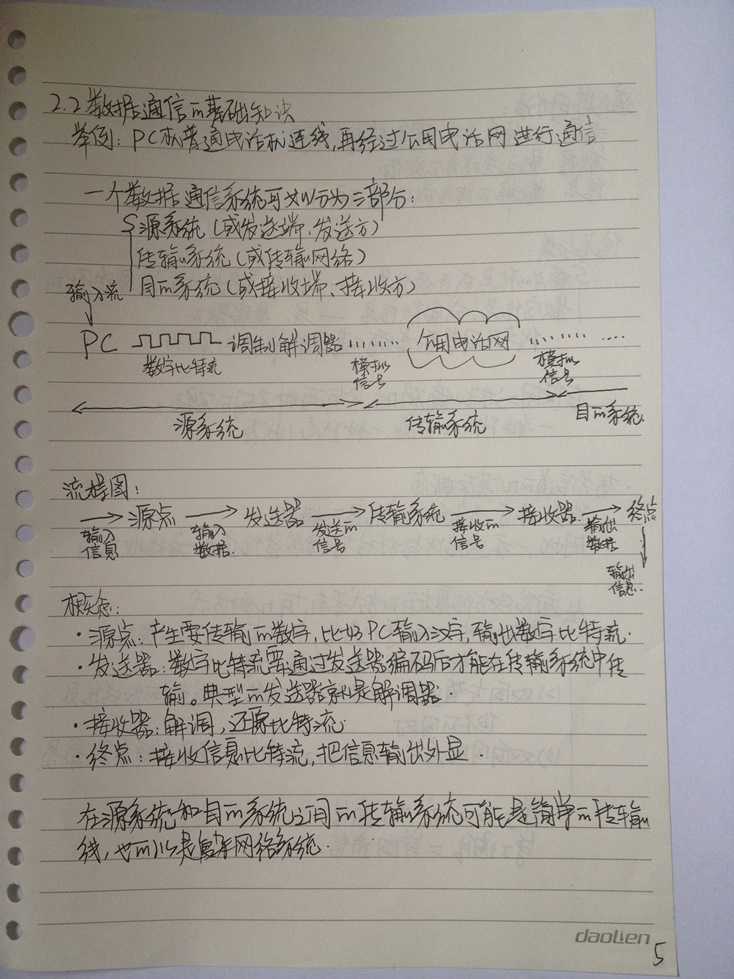 2.2 数据通信的基础知识
举例：PC机普通电话机连线，再经过公用电话网进行通信
一个数据通信系统可以划分为三部分：
源系统（或发送端、发送方）
传输系统（或传输网络）
目的系统（或接收端、接收方）
输入流
PC 数字比特流 调制解调器 模拟信号 公用电话网 模拟信号
源系统 传输系统 目的系统
流程图：
→源点→发送器→传输系统→接收器→终点
输入信息 输入数据 发送的信号 接收的信号 输出数据
输出信息
概念：
·源点：产生要传输的数字，比如PC输入汉字，输出数字比特流．
·发送器：数字比特流要通过发送器编码后才能在传输系统中传
输。典型的发送器就是解调器．
·接收器：解调，还原比特流．
·终点：接收信息比特流，把信息输出外显．
在源系统和目的系统之间的传输系统可能是简单的传输
线，也可以是复杂网络系统．
daolien
5